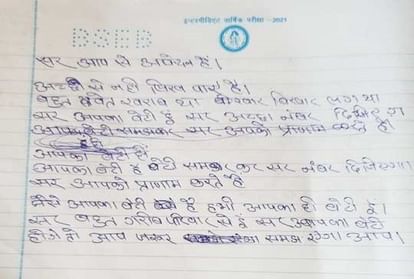 इन्टरमीडिएट वार्षिक परीक्षा - 2021
BSEB
सर आप से अपील है।
अच्छा से नहीं लिख पाए हैं।
बहुत तबियत खराब था बुखार लग गया
सर आपका बेटी है सर अच्छा नंबर दिजिएगा
आपका बेटी समझकर सर आपको प्रणाम करते हैं
आपका बेटी है
आपका बेटी है बेटी समझ कर सर नंबर दिजिएगा।
सर आपको प्रणाम करते हैं
जैसे आपका बेटी है हमी आपका ही बेटी हूँ।
सर बहुत गरीब परिवार से हूँ सर आपका बेटी
होगी तो आप जरूर समझ आप।